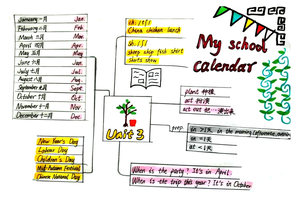 My school
calendar
January 一月 Jan.
February 二月 Feb.
March 三月 Mar.
April 四月 Apr.
May 五月 May
June 六月 Jun.
July 七月 Jul.
August 八月 Aug.
September 九月 Sept.
October 十月 Oct.
November 十一月 Nov.
December 十二月 Dec.
ch: / tʃ /
China chicken lunch
sh: / ʃ /
sheep ship fish shirt
shorts show
Unit 3
plant 种植
act 扮演
act out 把……演出来
prep
in > 1天 in the morning
on = 1天
at < 1天
New Year's Day
Labour Day
Children's Day
Mid-Autumn Festival
Chinese National Day
When is the party? It's in April.
When is the trip this year? It's in October